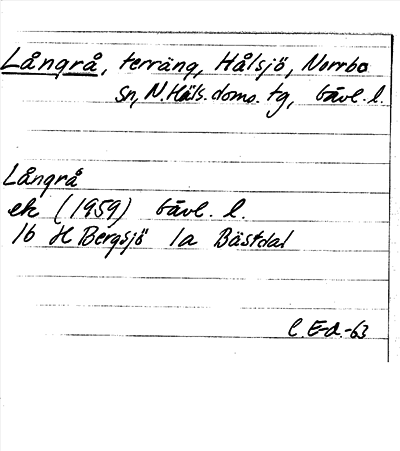 Långrå, terräng, Hålsjö, Norrbo
sn, N. Häls. doms. tg, Gävl. l.
Långrå
ek (1959) Gävl. l.
16 H Bergsjö 1a Bästdal
C. E-d.-63